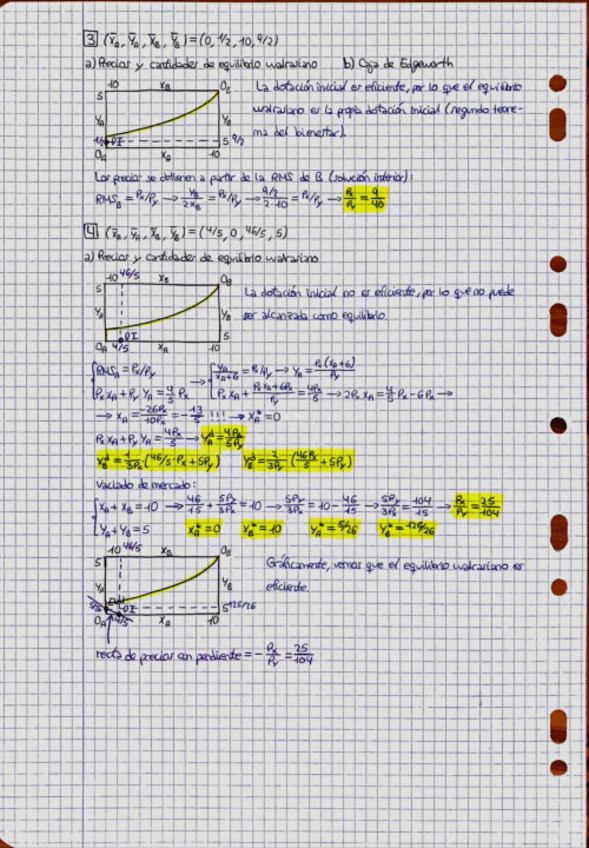 3 (x̄_A, ȳ_A, x̄_B, ȳ_B) = (0, 1/2, 10, 9/2)
a) Precios y cantidades de equilibrio walrasiano b) Caja de Edgeworth
10 x_B O_B
5
La dotación inicial es eficiente, por lo que el equilibrio
walrasiano es la propia dotación inicial (segundo teore-
ma del bienestar).
y_A y_B
1/2 DI 5 9/2
O_A x_A 10
Los precios se obtienen a partir de la RMS de B (solución interior):
RMS_B = Px/Py → y_B/2x_B = Px/Py → (9/2)/(2·10) = Px/Py → Px/Py = 9/40
4 (x̄_A, ȳ_A, x̄_B, ȳ_B) = (4/5, 0, 46/5, 5)
a) Precios y cantidades de equilibrio walrasiano
10 46/5 x_B O_B
5
La dotación inicial no es eficiente, por lo que no puede
ser alcanzada como equilibrio.
y_A y_B
DI 5
O_A 4/5 x_A 10
RMS_A = Px/Py → y_A/(x_A+6) = Px/Py → y_A = Px(x_A+6)/Py
Px x_A + Py y_A = 4/5 Px
Px x_A + = 4Px/5 → 2Px x_A = 4/5 Px - 6Px →
→ x_A = -26Px/10Px = -13/5 !!! → x_A* = 0
Px x_A + Py y_A = 4Px/5 → y_A^d = 4Px/5Py
x_B^d = 1/3Px · (46/5 · Px + 5Py) y_B^d = 2/3Py (46Px/5 + 5Py)
Vaciado de mercado:
x_A + x_B = 10 → 46/15 + 5Py/3Px = 10 → 5Py/3Px = 10 - 46/15 → 5Py/3Px = 104/15 → Px/Py = 25/104
y_A + y_B = 5 x_A* = 0 x_B* = 10 y_A* = 5/26 y_B* = 125/26
10 46/5 x_B O_B
5
Gráficamente, vemos que el equilibrio walrasiano es
eficiente.
y_A y_B
5/26 DI 5 125/26
O_A 4/5 x_A 10
recta de precios con pendiente = - Px/Py = 25/104